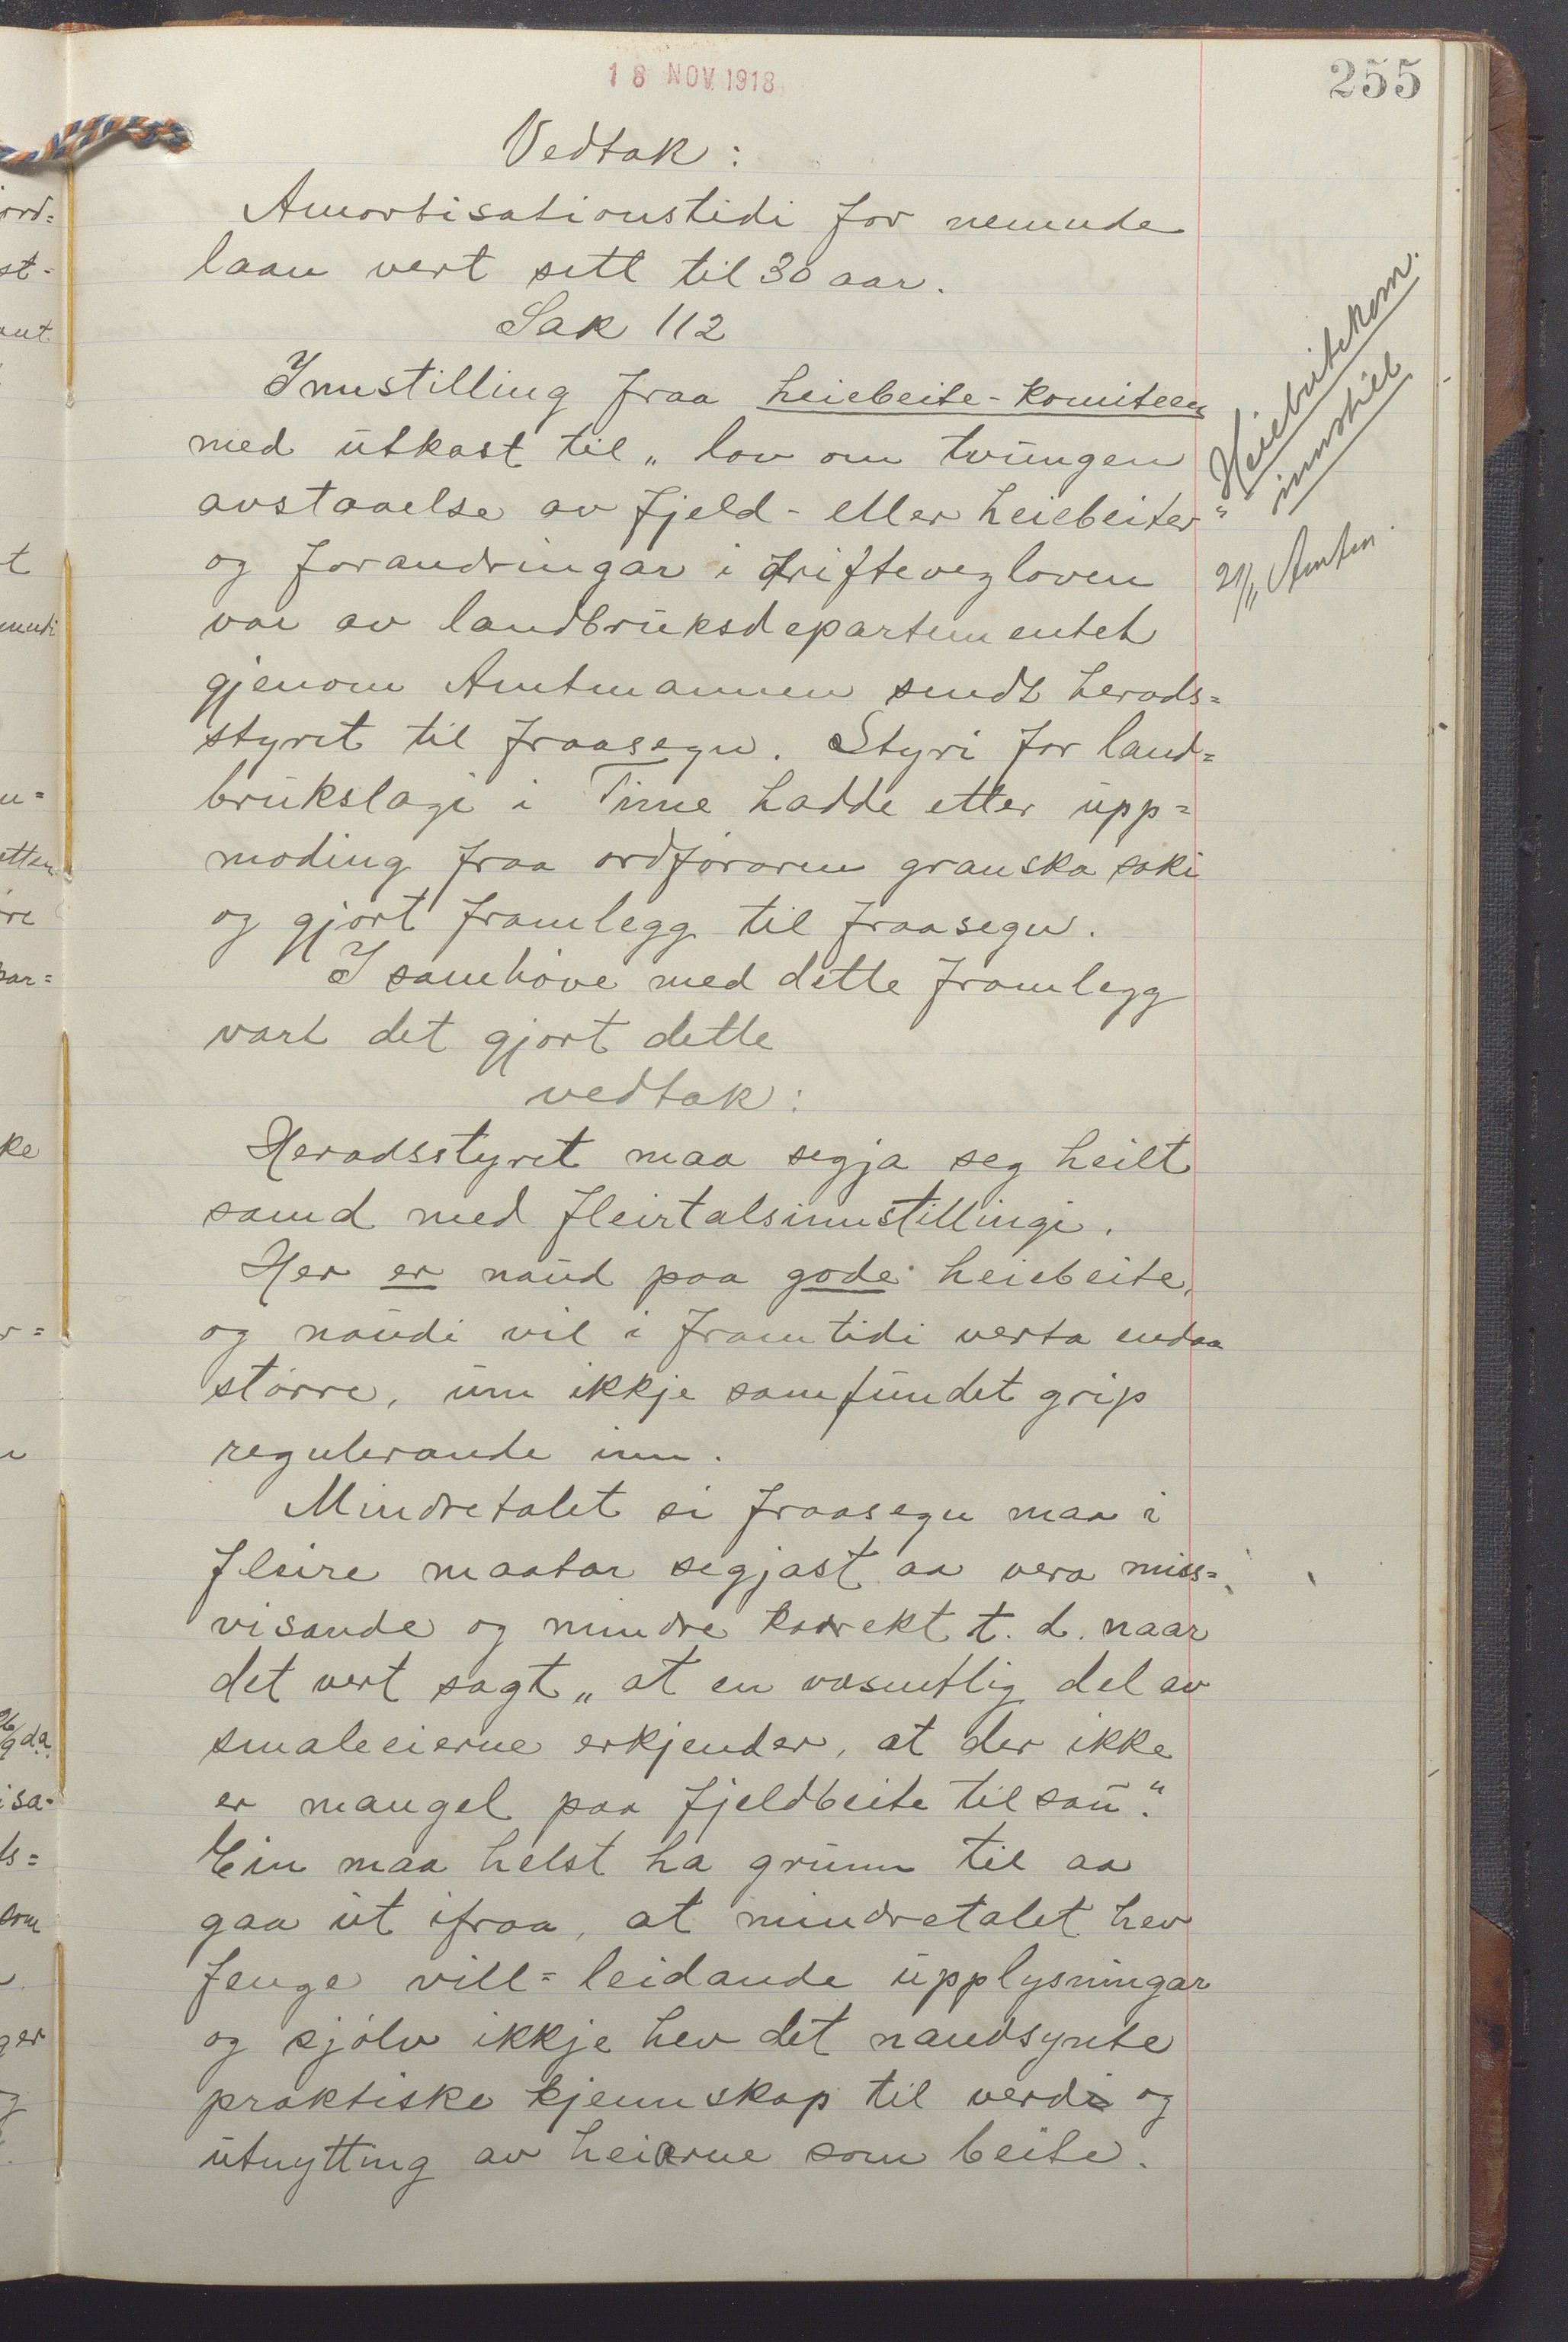 18 NOV. 1918
255
Vedtak:
Amortisationstidi for nemnde
laan vert sett til 30 aar.
Sak 112
Innstilling fraa heiebeite-komiteen
med utkast til „lov om tvungen
avstaaelse av fjeld- eller heiebeiter"
og forandringar i driftevegloven
var av landbruksdepartementet
gjenom Amtmannen sendt herads=
styret til fraasegn. Styri for land=
brukslagi i Time hadde etter upp=
moding fraa ordføraren granska saki
og gjort framlegg til fraasegn.
I samhøve med dette framlegg
vart det gjort dette
vedtak:
Heradsstyret maa segja seg heilt
samd med fleirtalsinnstillingi.
Her er naud paa gode heiebeite,
og naudi vil i framtidi verta endaa
større, um ikkje samfundet grip
regulerande inn.
Mindretalet si fraasegn maa i
fleire maatar segjast aa vera miss=
visande og mindre korrekt t. d. naar
det vert sagt „at en væsentlig del av
smaleeierne erkjender, at der ikke
er mangel paa fjeldbeite til sau".
Ein maa helst ha grunn til aa
gaa ut ifraa, at mindretalet hev
fenge vill=leidande upplysningar
og sjølv ikkje hev det naudsynte
praktiske kjennskap til verdi og
utnytting av heiarne som beite.
Heiebeitekom.
innstill
21/11 Amtm.
ord=
st-
t
u=
etten
re
par=
ke
r=
26/9 da.
isa-
ds=
som
ger